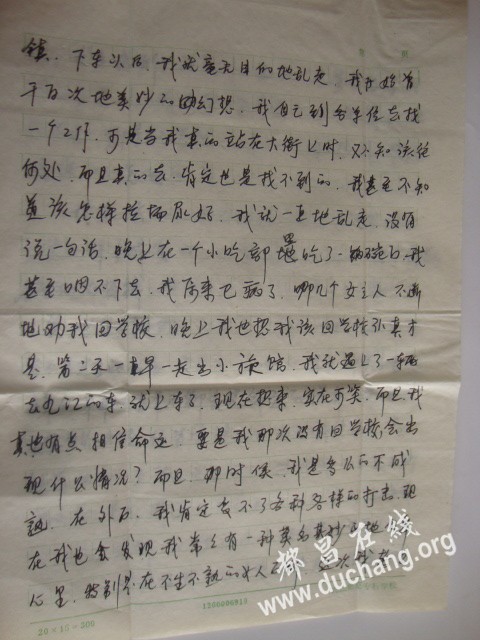 镇。下车以后，我就毫无目的地乱走，我开始曾
千百次地美妙的幻想，我自己到各单位去找
一个工作，可是当我真的站在大街上时，又不知该往
何处，而且真的去，肯定也是找不到的，我甚至不知
道该怎样拉场子好，我就一直地乱走，没有
说一句话，晚上在一个小吃部里吃了一碗面，我
甚至咽不下去，我原来已病了，哪几个女主人不断
地劝我回学校，晚上我也想我该回学校认真才
是，第二天一早一走出小旅馆，我就遇上了一辆
去九江的车，就上车了，现在想来，实在可笑，而且我
真也有点相信命运，要是我那次没有回学校，会出
现什么情况？而且，那时候，我是多么的不成
熟，在外面，我肯定受不了各种各样的打击，现
在我也会发现我常常有一种莫名其妙的
心里，特别是在不生不熟的女人
都昌在线
www.duchang.org
20×15=300